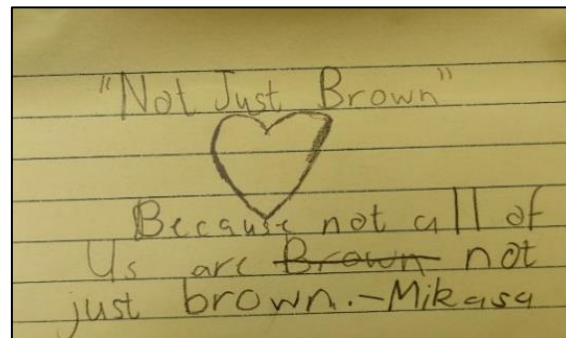 "Not Just Brown"
Because not all of
Us are Brown not
just brown.-Mikasa